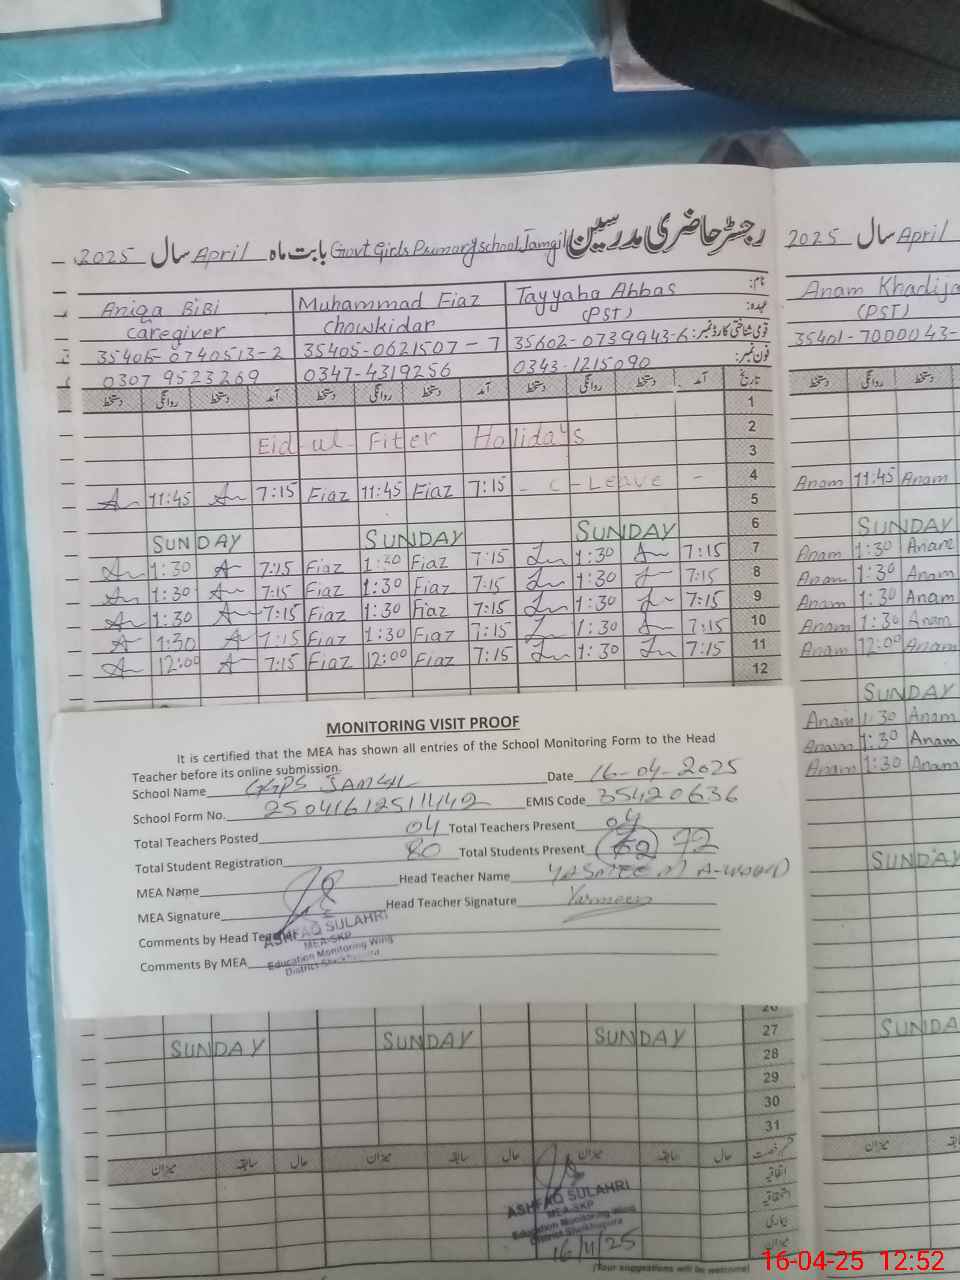 رجسٹر حاضری مدرسین Govt Girls Primary school Jamgil بابت ماہ April سال 2025
2025 سال April
نام: Tayyaba Abbas Muhammad Fiaz Aniqa BiBi
عہدہ: (PST) chowkidar caregiver
قومی شناختی کارڈ نمبر: 35602-0739943-6 35405-0621507-7 35405-0740513-2
فون نمبر: 0343-1215090 0347-4319256 0307 9523269
Anam Khadija
(PST)
35401-7000043-
تاریخ آمد دستخط روانگی دستخط آمد دستخط روانگی دستخط آمد دستخط روانگی دستخط
1
2
Eid-ul-Fiter Holidays
3
4 - C-Leave - 7:15 Fiaz 11:45 Fiaz 7:15 11:45
Anam 11:45 Anam
5
6 SUNDAY SUNDAY SUNDAY
SUNDAY
7 7:15 1:30 7:15 Fiaz 1:30 Fiaz 7:15 1:30
Anam 1:30 Anam
8 7:15 1:30 7:15 Fiaz 1:30 Fiaz 7:15 1:30
Anam 1:30 Anam
9 7:15 1:30 7:15 Fiaz 1:30 Fiaz 7:15 1:30
Anam 1:30 Anam
10 7:15 1:30 7:15 Fiaz 1:30 Fiaz 7:15 1:30
Anam 1:30 Anam
11 7:15 1:30 7:15 Fiaz 12:00 Fiaz 7:15 12:00
Anam 12:00 Anam
12
SUNDAY
Anam 1:30 Anam
Anam 1:30 Anam
Anam 1:30 Anam
SUNDAY
SUNDAY
MONITORING VISIT PROOF
It is certified that the MEA has shown all entries of the School Monitoring Form to the Head
Teacher before its online submission.
School Name GGPS JAMGIL Date 16-04-2025
School Form No. 25041612511442 EMIS Code 35420636
Total Teachers Posted 04 Total Teachers Present 04
Total Student Registration 80 Total Students Present 72
MEA Name Head Teacher Name YASMEEN
MEA Signature Head Teacher Signature Yasmeen
Comments by Head Teacher
ASHFAQ SULAHRI
MEA-SKP
Education Monitoring Wing
District Sheikhupura
Comments By MEA
26
27 SUNDAY SUNDAY SUNDAY
28
29
30
31
حال سابقہ میزان حال سابقہ میزان حال سابقہ میزان
اتفاقیہ
ASHFAQ SULAHRI
MEA-SKP
Education Monitoring Wing
District Sheikhupura
میزان
(Your suggestions will be welcome)
16-04-25 12:52